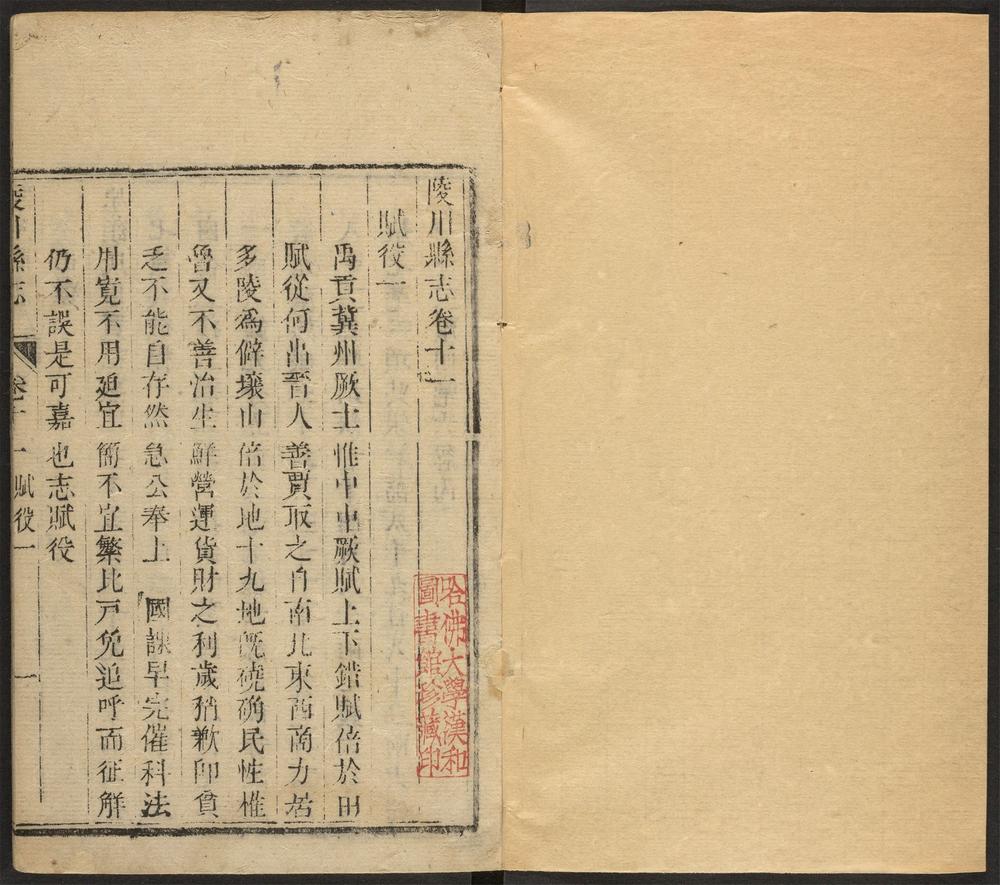 陵川縣志卷十一
賦役一
禹貢冀州厥土惟中中厥賦上下錯賦倍於田
賦從何出晋人善賈取之自南北東西商力居
多陵為僻壤山倍於地十九地旣磽确民性椎
魯又不善治生鮮營運貨財之利歲稍歉卽貧
乏不能自存然急公奉上 國課早完催科法
用寛不用廹宜簡不宜繁比戸免追呼而征解
仍不誤是可嘉也志賦役
陵川縣志 卷十一 賦役一 一
哈佛大學漢和
圖書館珍藏印